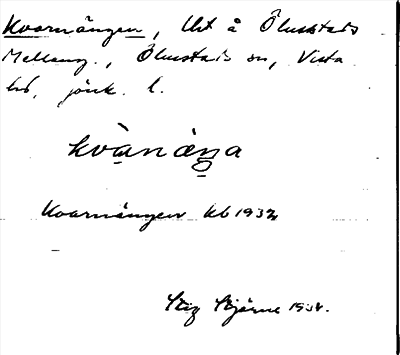 Kvarnängen, lht å Ölmstads
Mellang., Ölmstads sn, Vista
hd, jönk. l.
kvàrnàŋa
Kvarnängen kb 1932
Stig Bjärme 1934.